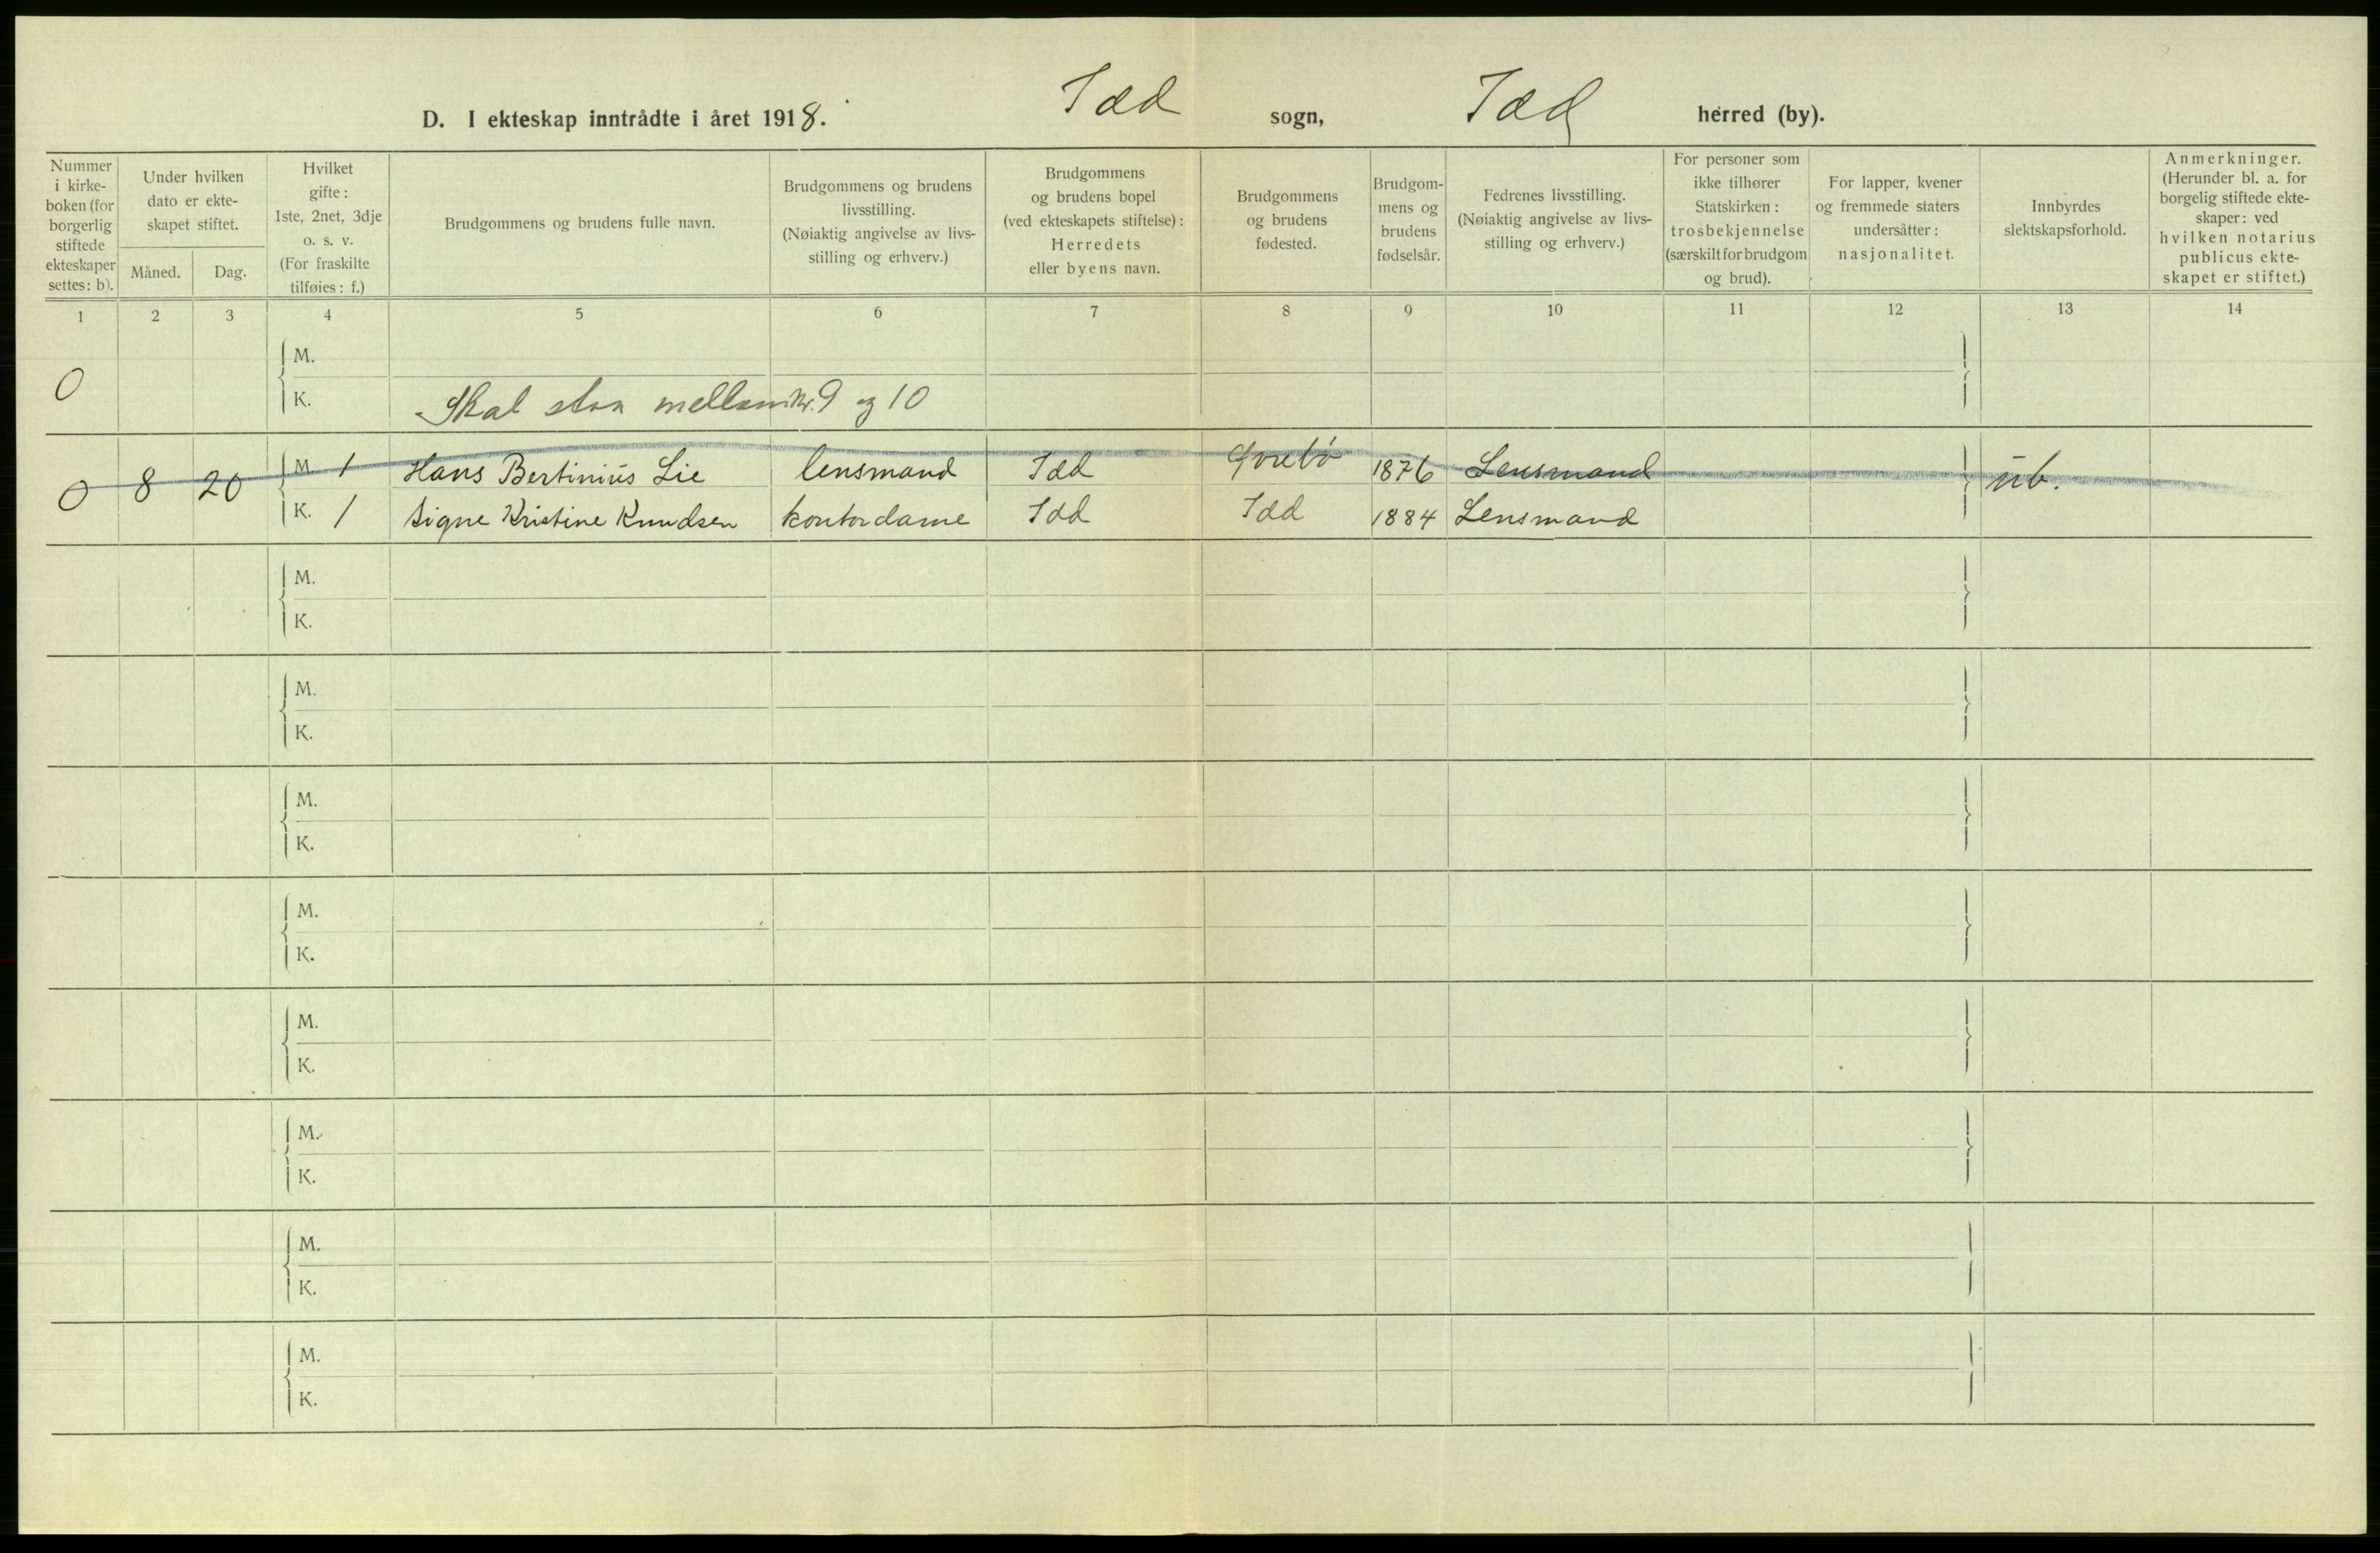 D. I ekteskap inntrådte i året 1918. Idd sogn, Idd herred (by).
Nummer
i kirke-
boken (for
borgerlig
stiftede
ekteskaper
settes: b).
Under hvilken
dato er ekte-
skapet stiftet.
Måned. Dag.
Hvilket
gifte:
1ste, 2net, 3dje
o. s. v.
(For fraskilte
tilføies: f.)
Brudgommens og brudens fulle navn.
Brudgommens og brudens
livsstilling.
(Nøiaktig angivelse av livs-
stilling og erhverv.)
Brudgommens
og brudens bopel
(ved ekteskapets stiftelse):
Herredets
eller byens navn.
Brudgommens
og brudens
fødested.
Brudgom-
mens og
brudens
fødselsår.
Fedrenes livsstilling.
(Nøiaktig angivelse av livs-
stilling og erhverv.)
For personer som
ikke tilhører
Statskirken:
trosbekjennelse
(særskilt for brudgom
og brud).
For lapper, kvener
og fremmede staters
undersåtter:
nasjonalitet.
Innbyrdes
slektskapsforhold.
Anmerkninger.
(Herunder bl. a. for
borgelig stiftede ekte-
skaper: ved
hvilken notarius
publicus ekte-
skapet er stiftet.)
1 2 3 4 5 6 7 8 9 10 11 12 13 14
M.
0
K. Skal staa mellem Nr. 9 og 10
M. 1 Hans Bertinius Lie lensmand Idd Øvrebø 1876 Lensmand
0 8 20 ub.
K. 1 Signe Kristine Knudsen kontordame Idd Idd 1884 Lensmand
M.
K.
M.
K.
M.
K.
M.
K.
M.
K.
M.
K.
M.
K.
M.
K.